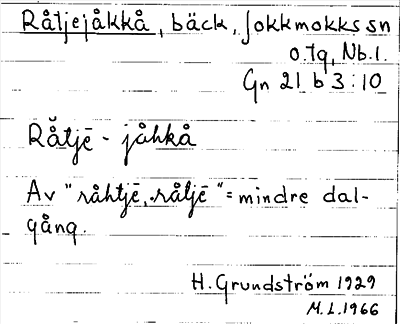 Råtjejåkkå, bäck, Jokkmokks sn
o. tg, Nb. l.
Gn 21 b 3:10
Rå̆tjē - jåhkå
Av "råhtjē, råtjē" = mindre dal-
gång.
H. Grundström 1929
M.L. 1966